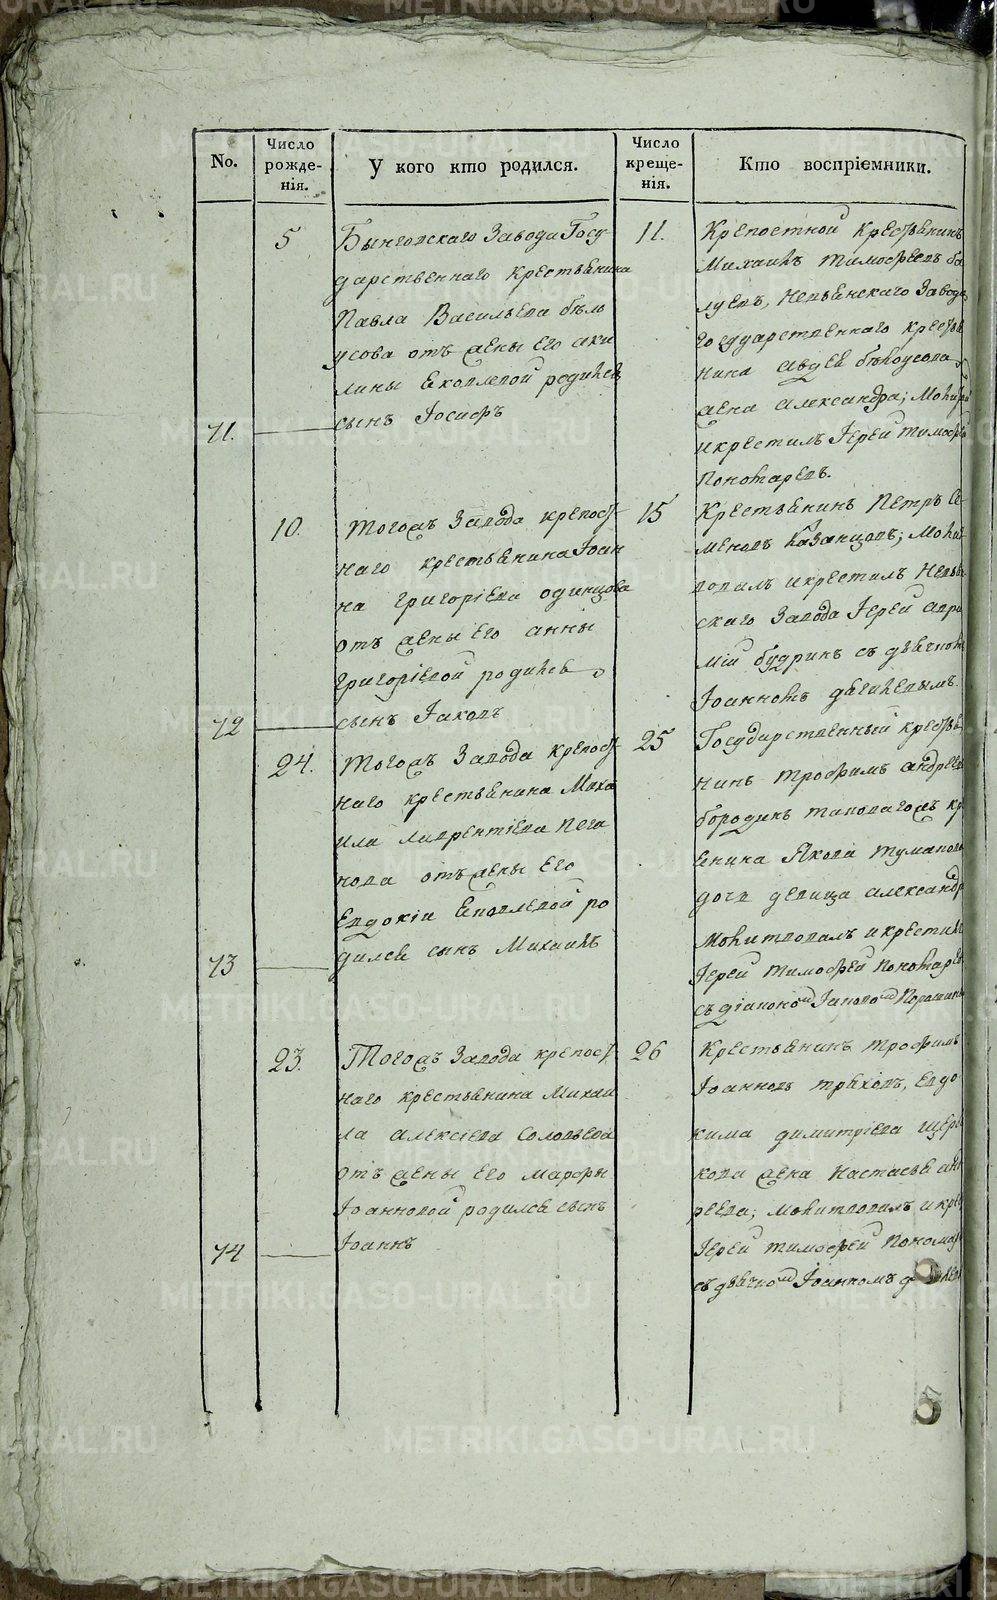 No.
Число рожде-нія.
У кого кто родился.
Число креще-нія.
Кто воспріемники.
71.
5
Бынговскаго Завода Госу
дарственнаго крестьянина
Павла Васильева бѣло
усова отъ жены его аки
лины Яковлевой родился
сынъ Іосифъ
11.
Крепостной крестьянинъ
Михаилъ тимофеевъ
Невьянскаго Завода
Государственнаго крестья
нина авдея бѣлоусова
жена александра; Молит
и крестилъ Іерей тимофей
Пономаревъ.
72
10.
Тогожъ Завода крепост
наго крестьянина Іоан
на григоріева одинцова
отъ жены его анны
григоріевой родился
сынъ Іаковъ
15
Крестьянинъ Петръ Се
меновъ Казанцовъ; Молит
вовалъ и крестилъ Невьян
скаго Завода Іерей
будринъ съ дьячкомъ
Іоанномъ
73
24.
Тогожъ Завода крепост
наго крестьянина Миха
ила лаврентіева Пега
нова отъ жены его
Евдокіи Яковлевой ро
дился сынъ Михаилъ
25
Государственный крестья
нинъ трофимъ андреевъ
бородинъ таковагожъ кр
енина Якова туманова
дочь девица александр
Молитвовалъ и крестилъ
Іерей тимофей Пономарев
съ діакономъ Іаковомъ
74
23.
Тогожъ Завода крепост
наго крестьянина Михаи
ла алексіева Соловьева
отъ жены его марфы
Іоанновой родился сынъ
Іоаннъ
26
Крестьянинъ трофимъ
Іоанновъ Евдо
кима димитріева щерб
кова жена Настасья анд
реева; молитвовалъ и крес
Іерей тимофей Пономар
съ дьячкомъ Іоанномъ
METRIKI.GASO-URAL.RU